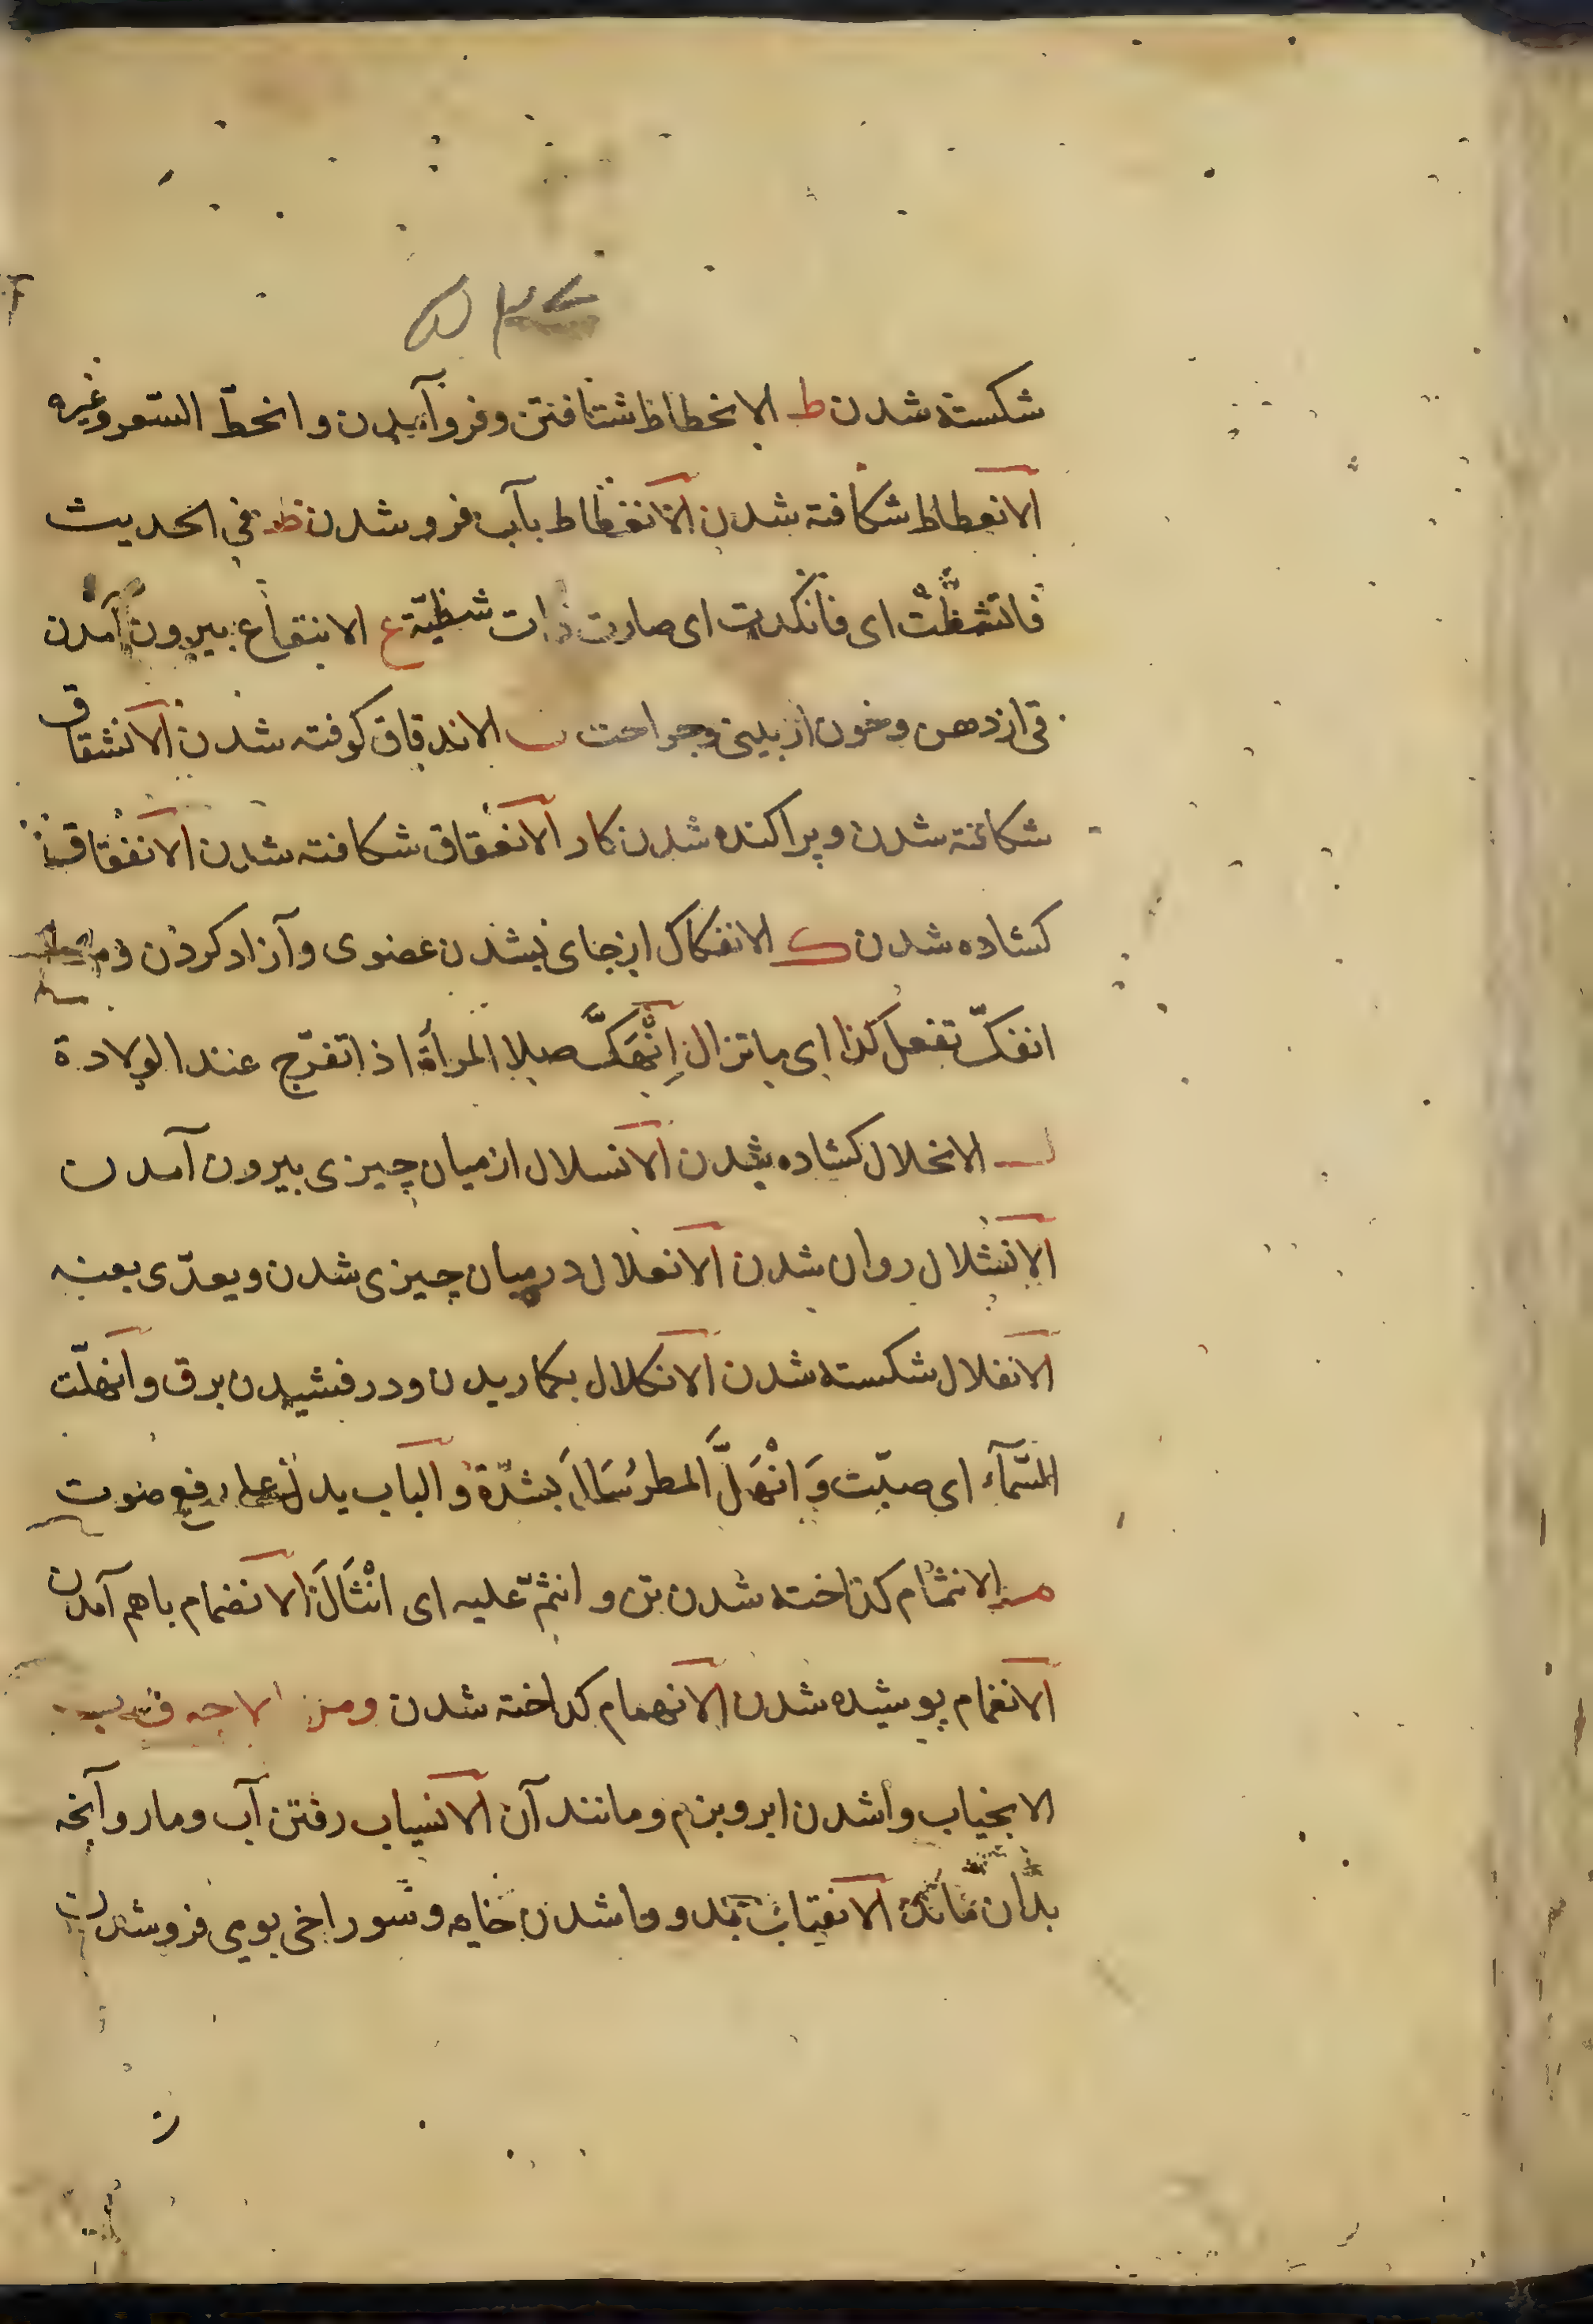 شکسته شدن ط الانحطاط شتافتن وفروآمدن وانحطّ السّعر وغیره
الانعطاط شکافته شدن الانغطاط بآب فرو شدن ظ فی الحدیث
فانشظّت ای فانکسرت ای صارت ذات شظیّة ع الانتعاع بیرون آمدن
قی از دهن وخون از بینی وجراحت ق الاندقاق کوفته شدن الانشقاق
شکافته شدن وپراکنده شدن کار الانعقاق شکافته شدن الانفقاق
کشاده شدن ک الانفکاک از جای بشدن عضوی وآزاد کردن وما
انفکّ تفعل کذا ای ما تزال اِنْهَکَّ صلا المرأة اذا تفرّج عند الولادة
ل الانحلال کشاده شدن الانسلال از میان چیزی بیرون آمدن
الانشلال روان شدن الانغلال در میان چیزی شدن ویعدّی بفی
الانفلال شکسته شدن الانکلال بکماریدن ودرفشیدن برق وانهلّت
السّمآء ای صبّت وَانْهَلَّ المطر سَالَ بشدّة والباب یدل علی رفع صوت
م الانثمام کداخته شدن تن وانثمّ علیه ای انْثَالَ الانضمام باهم آمدن
الانغمام پوشیده شدن الانهمام کداخته شدن ومن الاجوف ب
الانجیاب واشدن ابر وبزم ومانند آن الانسیاب رفتن آب ومار وآنچه
بدان ماند الانقیاب واشدن خایه وسوراخی بوی فروشدن